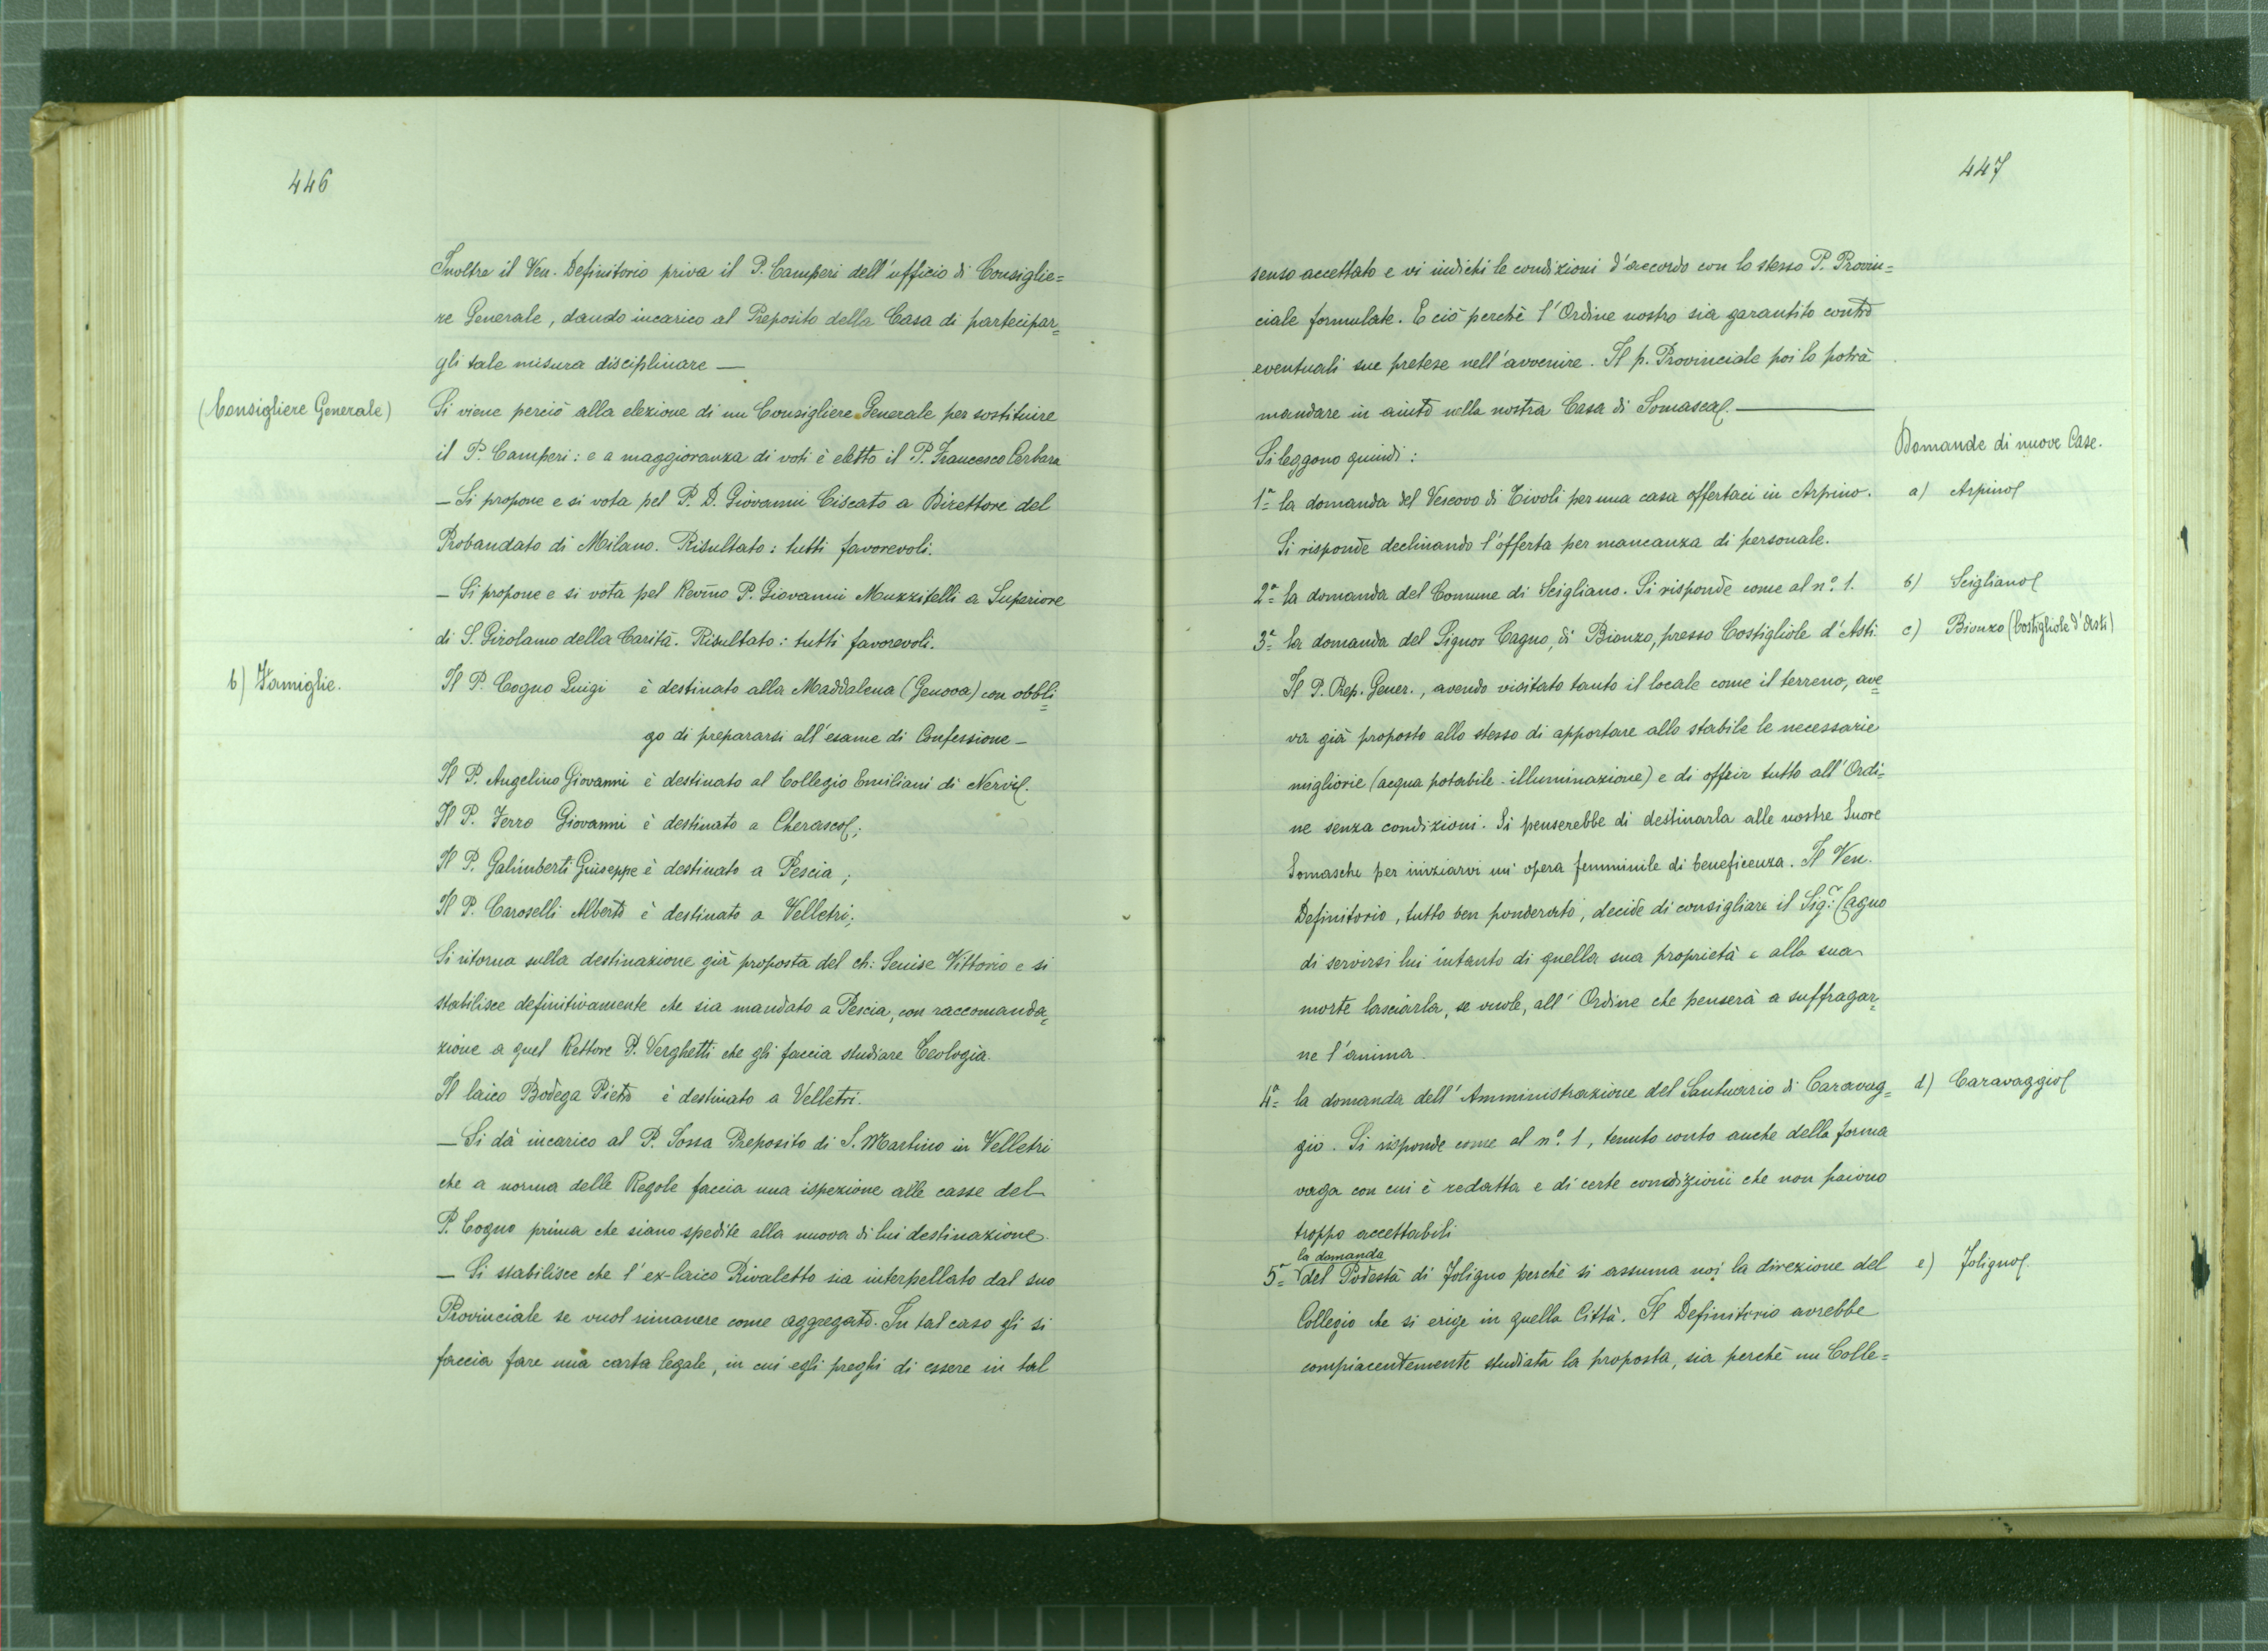 446
Inoltre il Ven. Definitorio priva il P. Camperi dell'ufficio di Consiglie=
re Generale, dando incarico al Preposito della Casa di partecipar=
gli tale misura disciplinare —
(Consigliere Generale)
Si viene perciò alla elezione di un Consigliere Generale per sostituire
il P. Camperi: e a maggioranza di voti è eletto il P. Francesco Cerbara
— Si propone e si vota pel P. D. Giovanni Ciscato a Direttore del
Probandato di Milano. Risultato: tutti favorevoli.
— Si propone e si vota pel Rev̄mo P. Giovanni Muzzitelli a Superiore
di S. Girolamo della Carità. Risultato: tutti favorevoli.
b) Famiglie.
Il P. Cogno Luigi è destinato alla Maddalena (Genova) con obbli=
go di prepararsi all'esame di Confessione —
Il P. Angelino Giovanni è destinato al Collegio Emiliani di Nervi.
Il P. Ferro Giovanni è destinato a Cherasco;
Il P. Galimberti Giuseppe è destinato a Pescia;
Il P. Caroselli Alberto è destinato a Velletri;
Si ritorna sulla destinazione già proposta del ch: Senise Vittorio e si
stabilisce definitivamente che sia mandato a Pescia, con raccomanda=
zione a quel Rettore P. Verghetti che gli faccia studiare Teologia.
Il laico Bodega Pietro è destinato a Velletri.
— Si dà incarico al P. Sossa Preposito di S. Martino in Velletri
che a norma delle Regole faccia una ispezione alle casse del
P. Cogno prima che siano spedite alla nuova di lui destinazione.
— Si stabilisce che l'ex-laico Rivaletto sia interpellato dal suo
Provinciale se vuol rimanere come aggregato. In tal caso gli si
faccia fare una carta legale, in cui egli preghi di essere in tal
447
senso accettato e vi indichi le condizioni d'accordo con lo stesso P. Provin=
ciale formulate. E ciò perchè l'Ordine nostro sia garantito contro
eventuali sue pretese nell'avvenire. Il p. Provinciale poi lo potrà
mandare in aiuto nella nostra Casa di Somasca. —
Domande di nuove Case.
Si leggono quindi:
1ª la domanda del Vescovo di Tivoli per una casa offertaci in Arpino.
a) Arpino
Si risponde declinando l'offerta per mancanza di personale.
2ª la domanda del Comune di Scigliano. Si risponde come al nº. 1.
b) Scigliano
3ª la domanda del Signor Cagno, di Bionzo, presso Costigliole d'Asti.
c) Bionzo (Costigliole d'Asti)
Il P. Rep. Gener., avendo visitato tanto il locale come il terreno, ave=
va già proposto allo stesso di apportare allo stabile le necessarie
migliorie (acqua potabile - illuminazione) e di offrir tutto all'Ordi=
ne senza condizioni. Si penserebbe di destinarla alle nostre Suore
Somasche per iniziarvi un' opera femminile di beneficenza. Il Ven.
Definitorio, tutto ben ponderato, decide di consigliare il Sig.r: Cagno
di servirsi lui intanto di quella sua proprietà e alla sua
morte lasciarla, se vuole, all' Ordine che penserà a suffragar=
ne l'anima.
4ª la domanda dell' Amministrazione del Santuario di Caravag=
d) Caravaggio
gio. Si risponde come al nº. 1, tenuto conto anche della forma
vaga con cui è redatta e di certe condizioni che non paiono
troppo accettabili
la domanda
5ª del Podestà di Foligno perchè si assuma noi la direzione del
e) Foligno
Collegio che si erige in quella Città. Il Definitorio avrebbe
compiacentemente studiata la proposta, sia perchè un Colle=